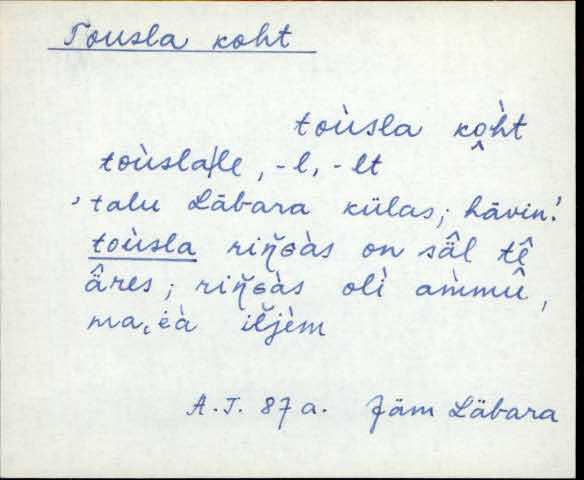 Tousla koht
toùsla ko͔h̀t
toùsla|le, -l, -lt
'talu Läbara külas; hävin.'
toùsla riŋ̆ɢàs on sä̂l tê
ä̂res; riŋ̆ɢàs olì am̀mû,
ma͕ èà il̆jèm
A.T. 87 a. Jäm Läbara